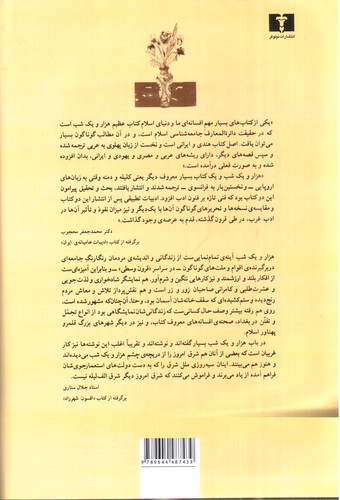 انتشارات نیلوفر
«یکی از کتاب‌های بسیار مهم افسانه‌ای ما و دنیای اسلام کتاب عظیم هزار و یک شب است
که در حقیقت دائرةالمعارف جامعه‌شناسی اسلام است، و در آن مطالب گوناگون بسیار
می‌توان یافت. اصل کتاب هندی و ایرانی است و نخست از زبان پهلوی به عربی ترجمه شده
و سپس قصه‌های دیگر، دارای ریشه‌های عربی و مصری و یهودی و ایرانی، بدان افزوده
شده و به صورت فعلی درآمده است.»
«هزار و یک شب و یک کتاب بسیار معروف دیگر یعنی کلیله و دمنه وقتی به زبان‌های
اروپایی ــ و نخستین‌بار به فرانسوی ــ ترجمه شدند و انتشار یافتند، بحث و تحقیق پیرامون
این دو کتاب فنی تازه بر فنون ادب افزود. ادبیات تطبیقی پس از انتشار این دو کتاب
و مقایسه‌ی نسخه‌ها و تحریرهای گوناگون آن‌ها با یک‌دیگر و نیز میزان نفوذ و تأثیر آن‌ها در
ادب غرب، در طی قرون گذشته، قدم به عرصه‌ی وجود گذاشت.»
دکتر محمدجعفر محجوب
برگرفته از کتاب «ادبیات عامیانه‌ی ایران»
هزار و یک شب آینه‌ی تمام‌نمایی‌ست از زندگانی و اندیشه‌ی مردمان رنگارنگ جامعه‌ای
دربرگیرنده‌ی اقوام و ملت‌های گوناگون ــ در سراسر «قرون وسطی» ــ و بنابراین آمیزه‌ای‌ست
از افکار بلند و ارزشمند و نیز کارهایی ننگین و شرم‌آور. هم نمایشگر شادخواری و لذت‌جویی
و عشرت‌طلبی و کامرانی صاحبان زور و زر است و هم نقش‌پرداز تلاش و معاش مردم
رنج‌دیده و ستم‌کشیده‌ای که سقف خانه‌شان آسمان بود. و حتا، آن‌چنان‌که مشهور شده است،
روی هم رفته بیشتر وصف حال کسانی‌ست که زندگانی‌شان نمایشگاهی بود از انواع تجمّل
و تفنّن در بغداد، صحنه‌ی افسانه‌های معروف کتاب، و نیز در دیگر شهرهای بزرگ قلمرو
پهناور اسلام.
در باب هزار و یک شب بسیار گفته‌اند و نوشته‌اند و تقریباً اغلب این نوشته‌ها نیز کار
غربیان است که بعضی از آنان هم شرق امروز را از دریچه‌ی چشم هزار و یک شب می‌دیده‌اند
و هنوز هم می‌بینند. اینان سیه‌روزی ملل شرق را که به دست دولت‌های استعمارجوی‌شان
فراهم آمده از یاد می‌برند و فراموش می‌کنند که شرق امروز دیگر شرق الف‌لیله نیست.
استاد جلال ستاری
برگرفته از کتاب «افسون شهرزاد»
9 789644 487439